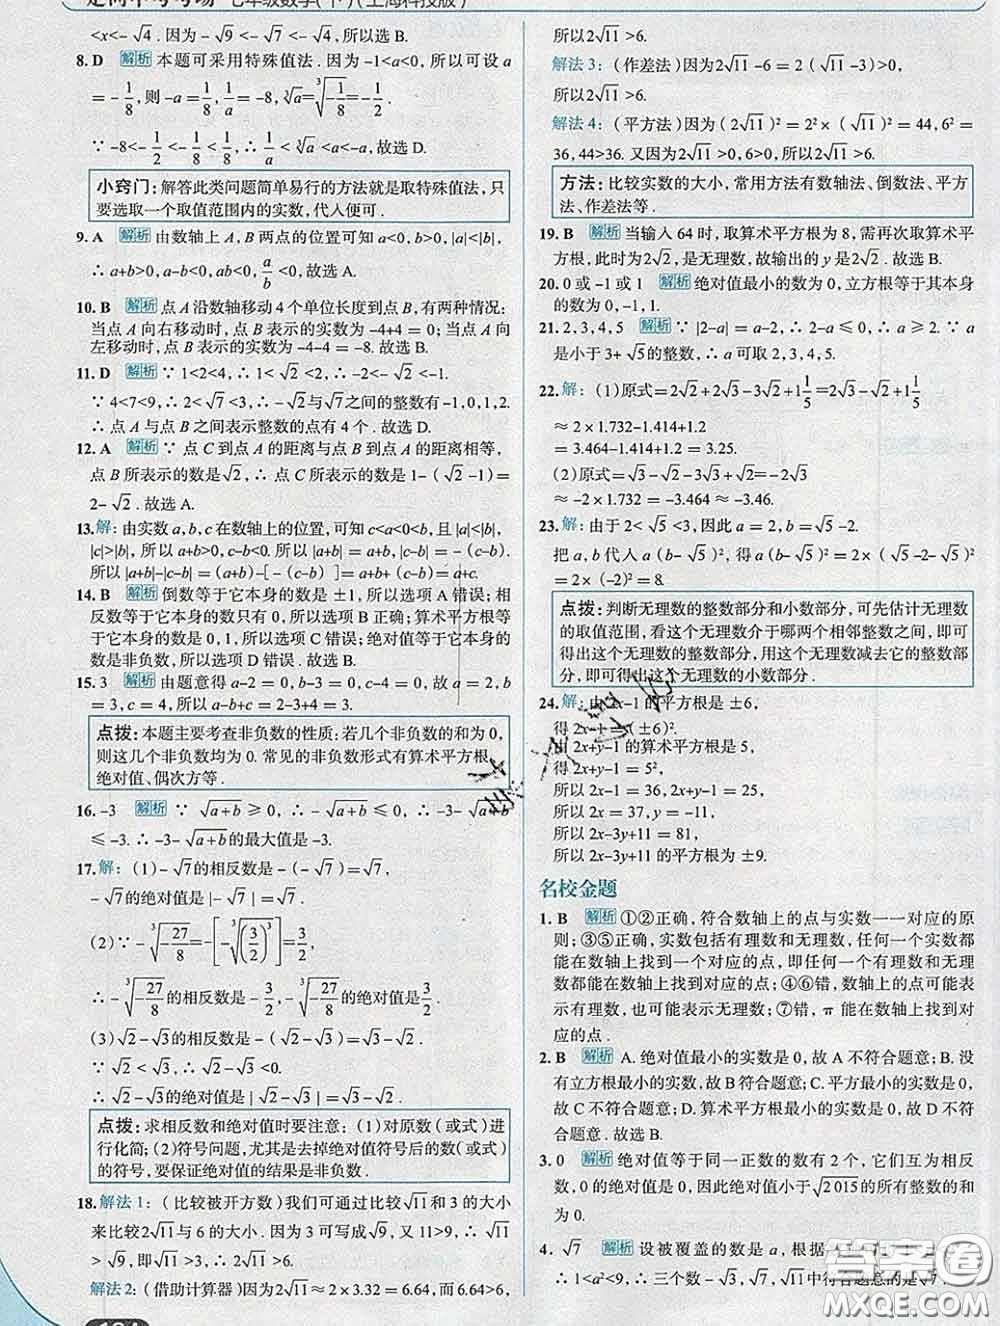 走向中考考场 七年级数学(下)(上海科技版)
<x<-√4.因为-√9<-√7<-√4,所以选B.
8. D 解析 本题可采用特殊值法.因为-1<a<0,所以可设a
=-1/8,则-a=1/8,1/a=-8,∛a=∛(-1/8)=-1/2.
∵-8<-1/2<-1/8<1/8,∴1/a<∛a<a<-a.故选D.
小窍门:解答此类问题简单易行的方法就是取特殊值法,只
要选取一个取值范围内的实数,代入便可.
9. A 解析 由数轴上A,B两点的位置可知a<0,b>0,|a|<|b|,
∴a+b>0,a-b<0,ab<0,a/b<0,故选A.
10. B 解析 点A沿数轴移动4个单位长度到点B,有两种情况:
当点A向右移动时,点B表示的实数为-4+4=0;当点A向
左移动时,点B表示的实数为-4-4=-8.故选B.
11. D 解析 ∵1<2<4,∴1<√2<2,∴-2<-√2<-1.
∵4<7<9,∴2<√7<3,∴-√2与√7之间的整数有-1,0,1,2.
∴点A与点B之间表示整数的点有4个.故选D.
12. A 解析 ∵点C到点A的距离与点B到点A的距离相等,
点B所表示的数是√2,∴点C所表示的数是1-(√2-1)=
2-√2.故选A.
13. 解:由实数a,b,c在数轴上的位置,可知c<a<0<b,且|a|<|b|,
|c|>|b|,所以a+b>0,c-b<0,所以|a+b|=a+b,|c-b|=-(c-b).
所以|a+b|-|c-b|=(a+b)-[-(c-b)]=(a+b)+(c-b)=a+c.
14. B 解析 倒数等于它本身的数是±1,所以选项A错误;相
反数等于它本身的数只有0,所以选项B正确;算术平方根等
于它本身的数是0,1,所以选项C错误;绝对值等于它本身的
数是非负数,所以选项D错误.故选B.
15. 3 解析 由题意得a-2=0,b-3=0,c-4=0,故a=2,b=
3,c=4.所以a-b+c=2-3+4=3.
点拨:本题主要考查非负数的性质:若几个非负数的和为0,
则这几个非负数均为0.常见的非负数形式有算术平方根、
绝对值、偶次方等.
16. -3 解析 ∵√(a+b)≥0,∴-√(a+b)≤0,∴-3-√(a+b)
≤-3.∴-3-√(a+b)的最大值是-3.
17. 解:(1)-√7的相反数是-(-√7)=√7,
-√7的绝对值是|-√7|=√7.
(2)∵-∛(-27/8)=-[-∛((3/2)³)]=3/2,
∴-∛(-27/8)的相反数是-3/2,-∛(-27/8)的绝对值是3/2.
(3)√2-√3的相反数是-(√2-√3)=√3-√2.
∵√2<√3,∴√2-√3<0.
∴√2-√3的绝对值是|√2-√3|=√3-√2.
点拨:求相反数和绝对值时要注意:(1)对原数(或式)进
行化简;(2)符号问题,尤其是去掉绝对值符号后的数(或式)
的符号,要保证绝对值的结果是非负数.
18. 解法1:(比较被开方数)我们可通过比较√11和3的大小
来比较2√11与6的大小.因为3可写成√9,又11>9,∴√11
>√9,即√11>3,所以2√11>6.
解法2:(借助计算器)因为2√11≈2×3.32=6.64,而6.64>6,
所以2√11>6.
解法3:(作差法)因为2√11-6=2(√11-3)>0,
所以2√11>6.
解法4:(平方法)因为(2√11)²=2²×(√11)²=44,6²=
36,44>36.又因为2√11>0,6>0,所以2√11>6.
方法:比较实数的大小,常用方法有数轴法、倒数法、平方
法、作差法等.
19. B 解析 当输入64时,取算术平方根为8,需再次取算术平
方根,此时为2√2,是无理数,故输出的y是2√2.故选B.
20. 0或-1或1 解析 绝对值最小的数为0,立方根等于其本身
的数为0,-1,1.
21. 2,3,4,5 解析 ∵|2-a|=a-2,∴2-a≤0,∴a≥2.∵a
是小于3+√5的整数,∴a可取2,3,4,5.
22. 解:(1)原式=2√2+2√3-3√2+1 1/5=2√3-√2+1 1/5
≈2×1.732-1.414+1.2
=3.464-1.414+1.2=3.25.
(2)原式=√3-√2-3√3+√2=-2√3
≈-2×1.732=-3.464≈-3.46.
23. 解:由于2<√5<3,因此a=2,b=√5-2.
把a,b代入a(b-√5)²,得a(b-√5)²=2×(√5-2-√5)²
=2×(-2)²=8.
点拨:判断无理数的整数部分和小数部分,可先估计无理数
的取值范围,看这个无理数介于哪两个相邻整数之间,即可
得出这个无理数的整数部分,用这个无理数减去它的整数部
分,即可得出这个无理数的小数部分.
24. 解:由2x-1的平方根是±6,
得2x-1=(±6)².
由2x+y-1的算术平方根是5,
得2x+y-1=5²,
所以2x-1=36,2x+y-1=25,
所以2x=37,y=-11,
所以2x-3y+11=81,
所以2x-3y+11的平方根为±9.
名校金题
1. B 解析 ①②正确,符合数轴上的点与实数一一对应的原
则;③⑤正确,实数包括有理数和无理数,任何一个实数都
能在数轴上找到一个对应的点,即任何一个有理数和无理
数都能在数轴上找到对应的点;④⑥错,数轴上的点可能表
示有理数,也可能表示无理数;⑦错,π能在数轴上找到对
应的点.
2. B 解析 A.绝对值最小的实数是0,故A不符合题意;B.没
有立方根最小的实数,故B符合题意;C.平方最小的实数是
0,故C不符合题意;D.算术平方根最小的实数是0,故D不符
合题意.故选B.
3. 0 解析 绝对值等于同一正数的数有2个,它们互为相反
数,和是0,因此绝对值小于√2 015的所有整数的和
为0.
4. √7 解析 设被覆盖的数是a,根据
∴1<a²<9,∴三个数-√3,√7,√11中符合题意的是√7.
答案圈
MXQE.COM